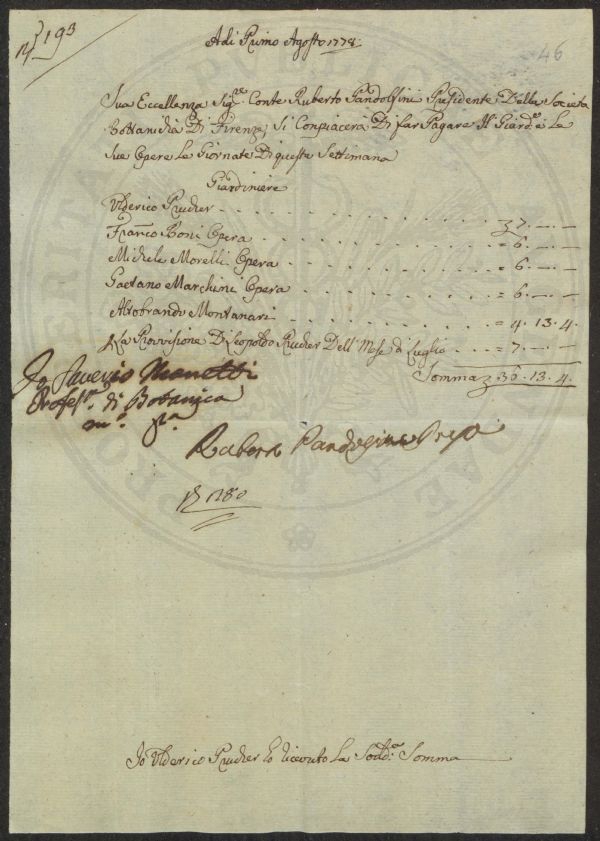 N.º 193
Adi Primo Agosto 1778.
46
Sua Eccellenza Sig.re Conte Ruberto Pandolfini Presidente Della Società
Bottanicha Di Firenze, Si Conpiacerà Di far Pagare Il Giard.e e Le
Sue Opere Le Giornate Di questa Settimana
Giardiniere
Ulderico Prucher . . . . . . . . . 7. —. —
Franco Boni Opera . . . . . . . . = 6. —. —
Michele Morelli Opera . . . . . . . = 6. —. —
Gaetano Marchini Opera . . . . . . = 6. —. —
Altobrando Montanari . . . . . . . = 4. 13. 4.
La Provisione Di Leopoldo Prucher Dell' Mese di Luglio . . . = 7. —. —
Somma 36. 13. 4.
Io Saverio Manetti
Profess.e di Botanica
m.o p.a
Ruberto Pandolfini Pres.
Io Ulderico Prucher ho riceuto La Sodd.a Somma